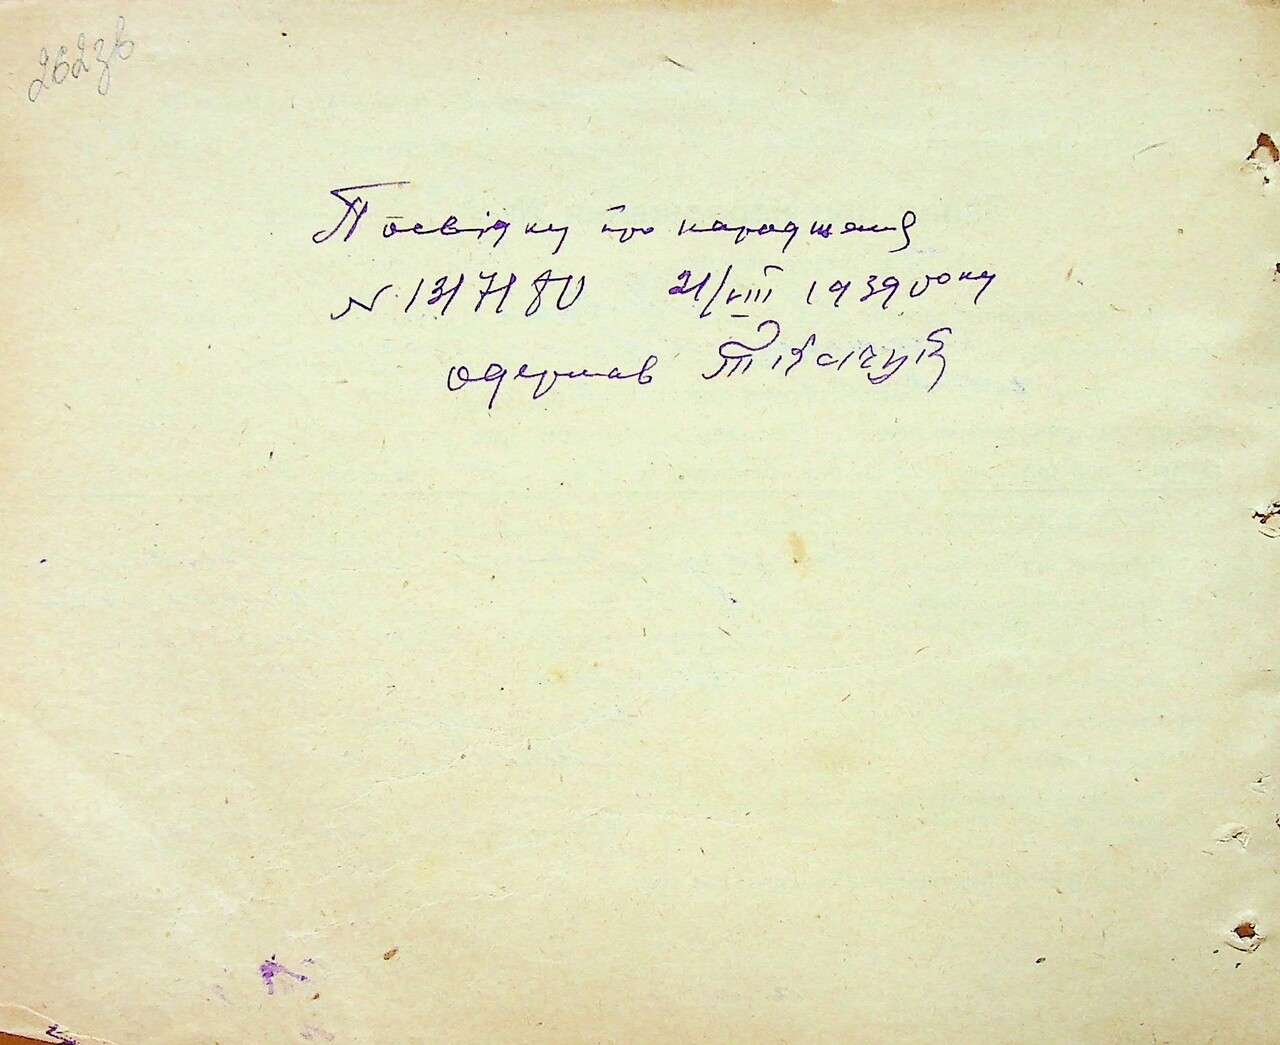 262зв
Посвідку про народження
N. 1317180 21/VIII 1939 року
одержав Ткачук